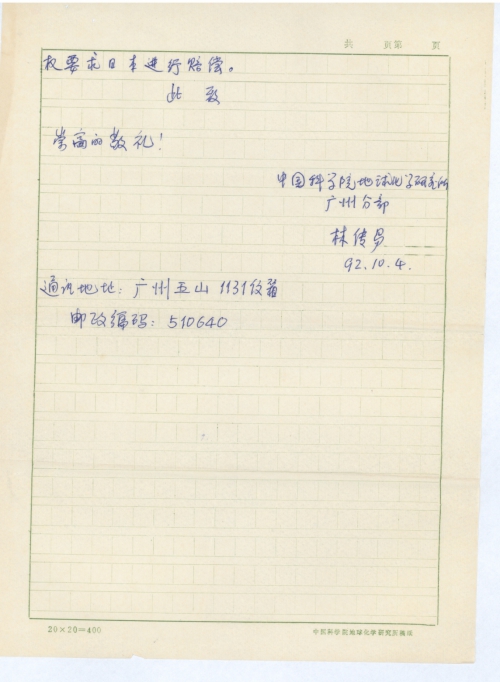 共 页第 页
权要求日本进行赔偿。
此致
崇高的敬礼！
中国科学院地球化学研究所
广州分部
林传员
92.10.4.
通讯地址：广州五山1131信箱
邮政编码：510640
20×20=400
中国科学院地球化学研究所稿纸